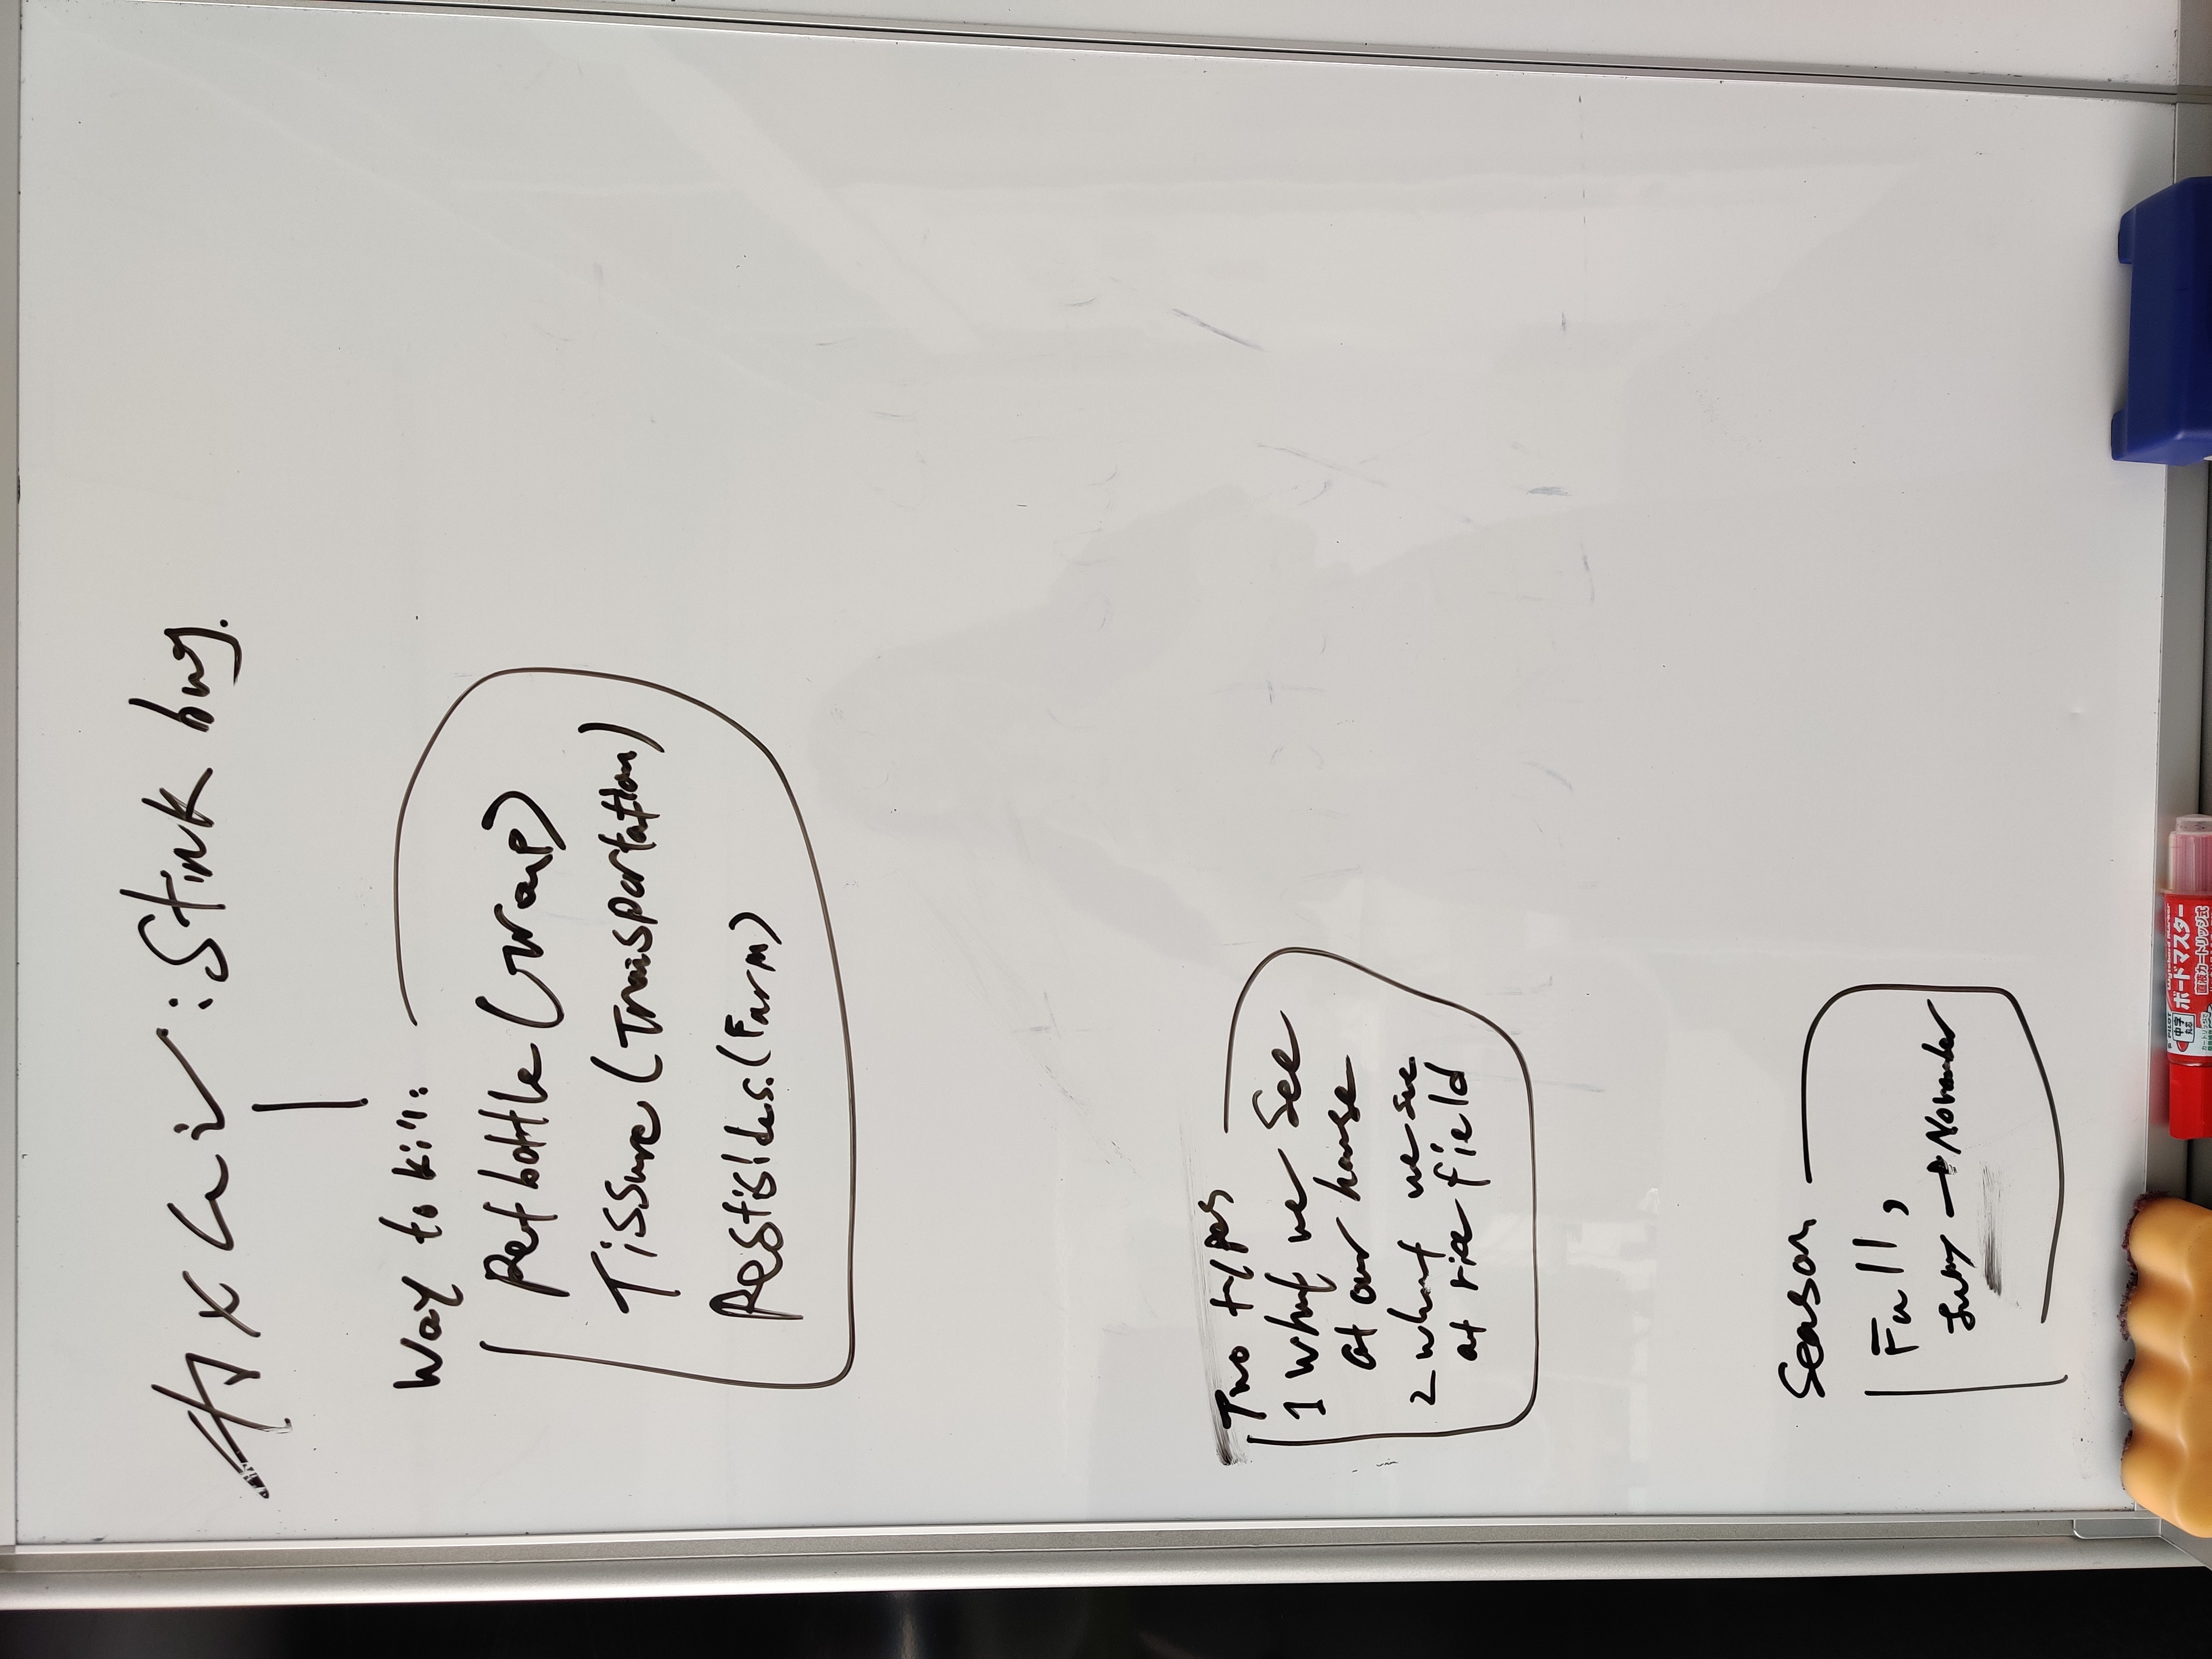 カメムシ:Stink bug.
Way to kill:
Pet bottle (Trap)
Tissure (Transportation)
Pestisides. (Farm)
Two types
1 what we see
at our house
2 what we see
at rice field
Season
Fall,
→ November
PILOT Wyteboard Marker
中字
丸芯
ボードマスター
直液カートリッジ式